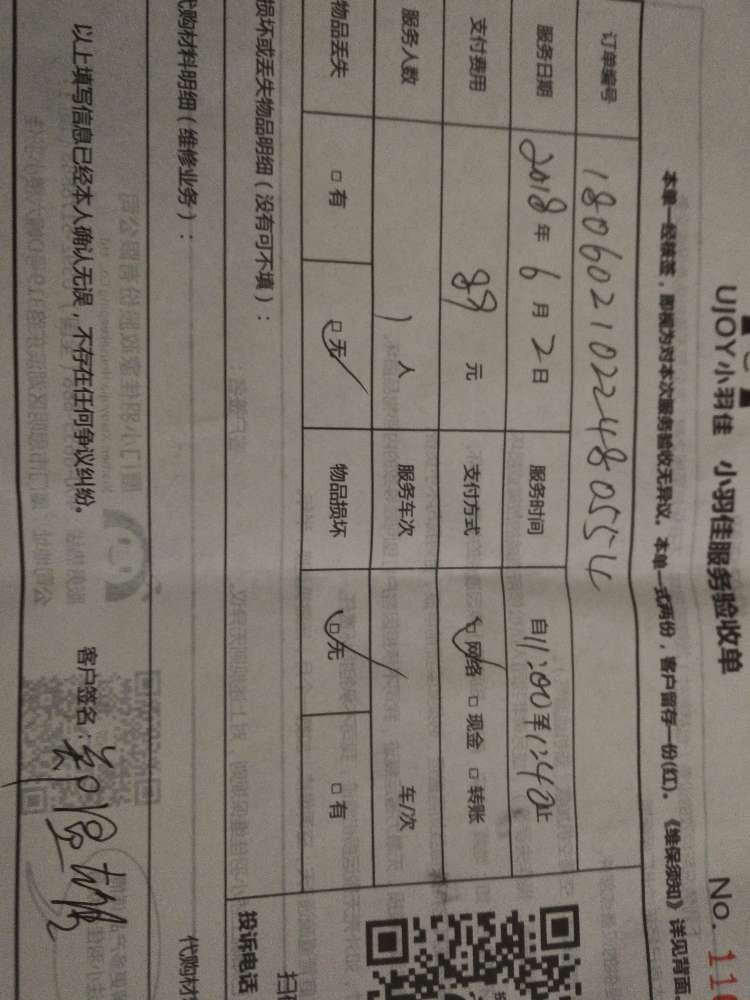 UJOY小羽佳 小羽佳服务验收单 No. 11
本单一经核签，即视为对本次服务验收无异议。本单一式两份，客户留存一份(红)。《维保须知》详见背面
订单编号 1806021022480554
服务日期 2018年6月2日 服务时间 自11:00至1:40止
支付费用 89元 支付方式 ☑网络 □现金 □转账
服务人数 1人 服务车次 车/次
物品丢失 □有 ☑无 物品损坏 ☑无 □有
损坏或丢失物品明细（没有可不填）：
投诉电话
代购材料明细（维修业务）：
代购材
以上填写信息已经本人确认无误，不存在任何争议纠纷。 客户签名：